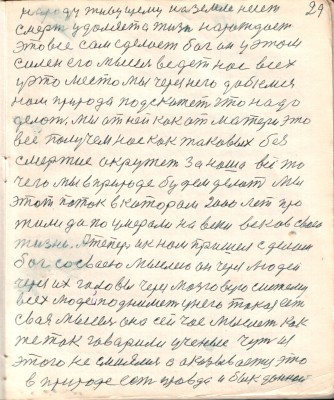 29
народу живущему на земле несет
смерт удаляета жизн нарождает
это все сам сделает бог он у этом
силен его мысля ведет нас всех
у это место мы через него добемся
нам природа подскажет што надо
делат. Мы от ней как от матери это
всё получем нас как таковых без
смертие окружет за наша всё то
чего мы в природе будем делат мы
этот поток в котором 2000 лет про
жили да поумерали на веки веков свою
жизнь. А тепер ик нам пришел с делам
бог со своею мыслею он через людей
через их головы через мозговую систему
всех людей поднимет у него такая ест
своя мысля она сейчас мыслит как
же так говарили ученые
этого не смеялися а оказывается это
в природе ест правда и бык донной